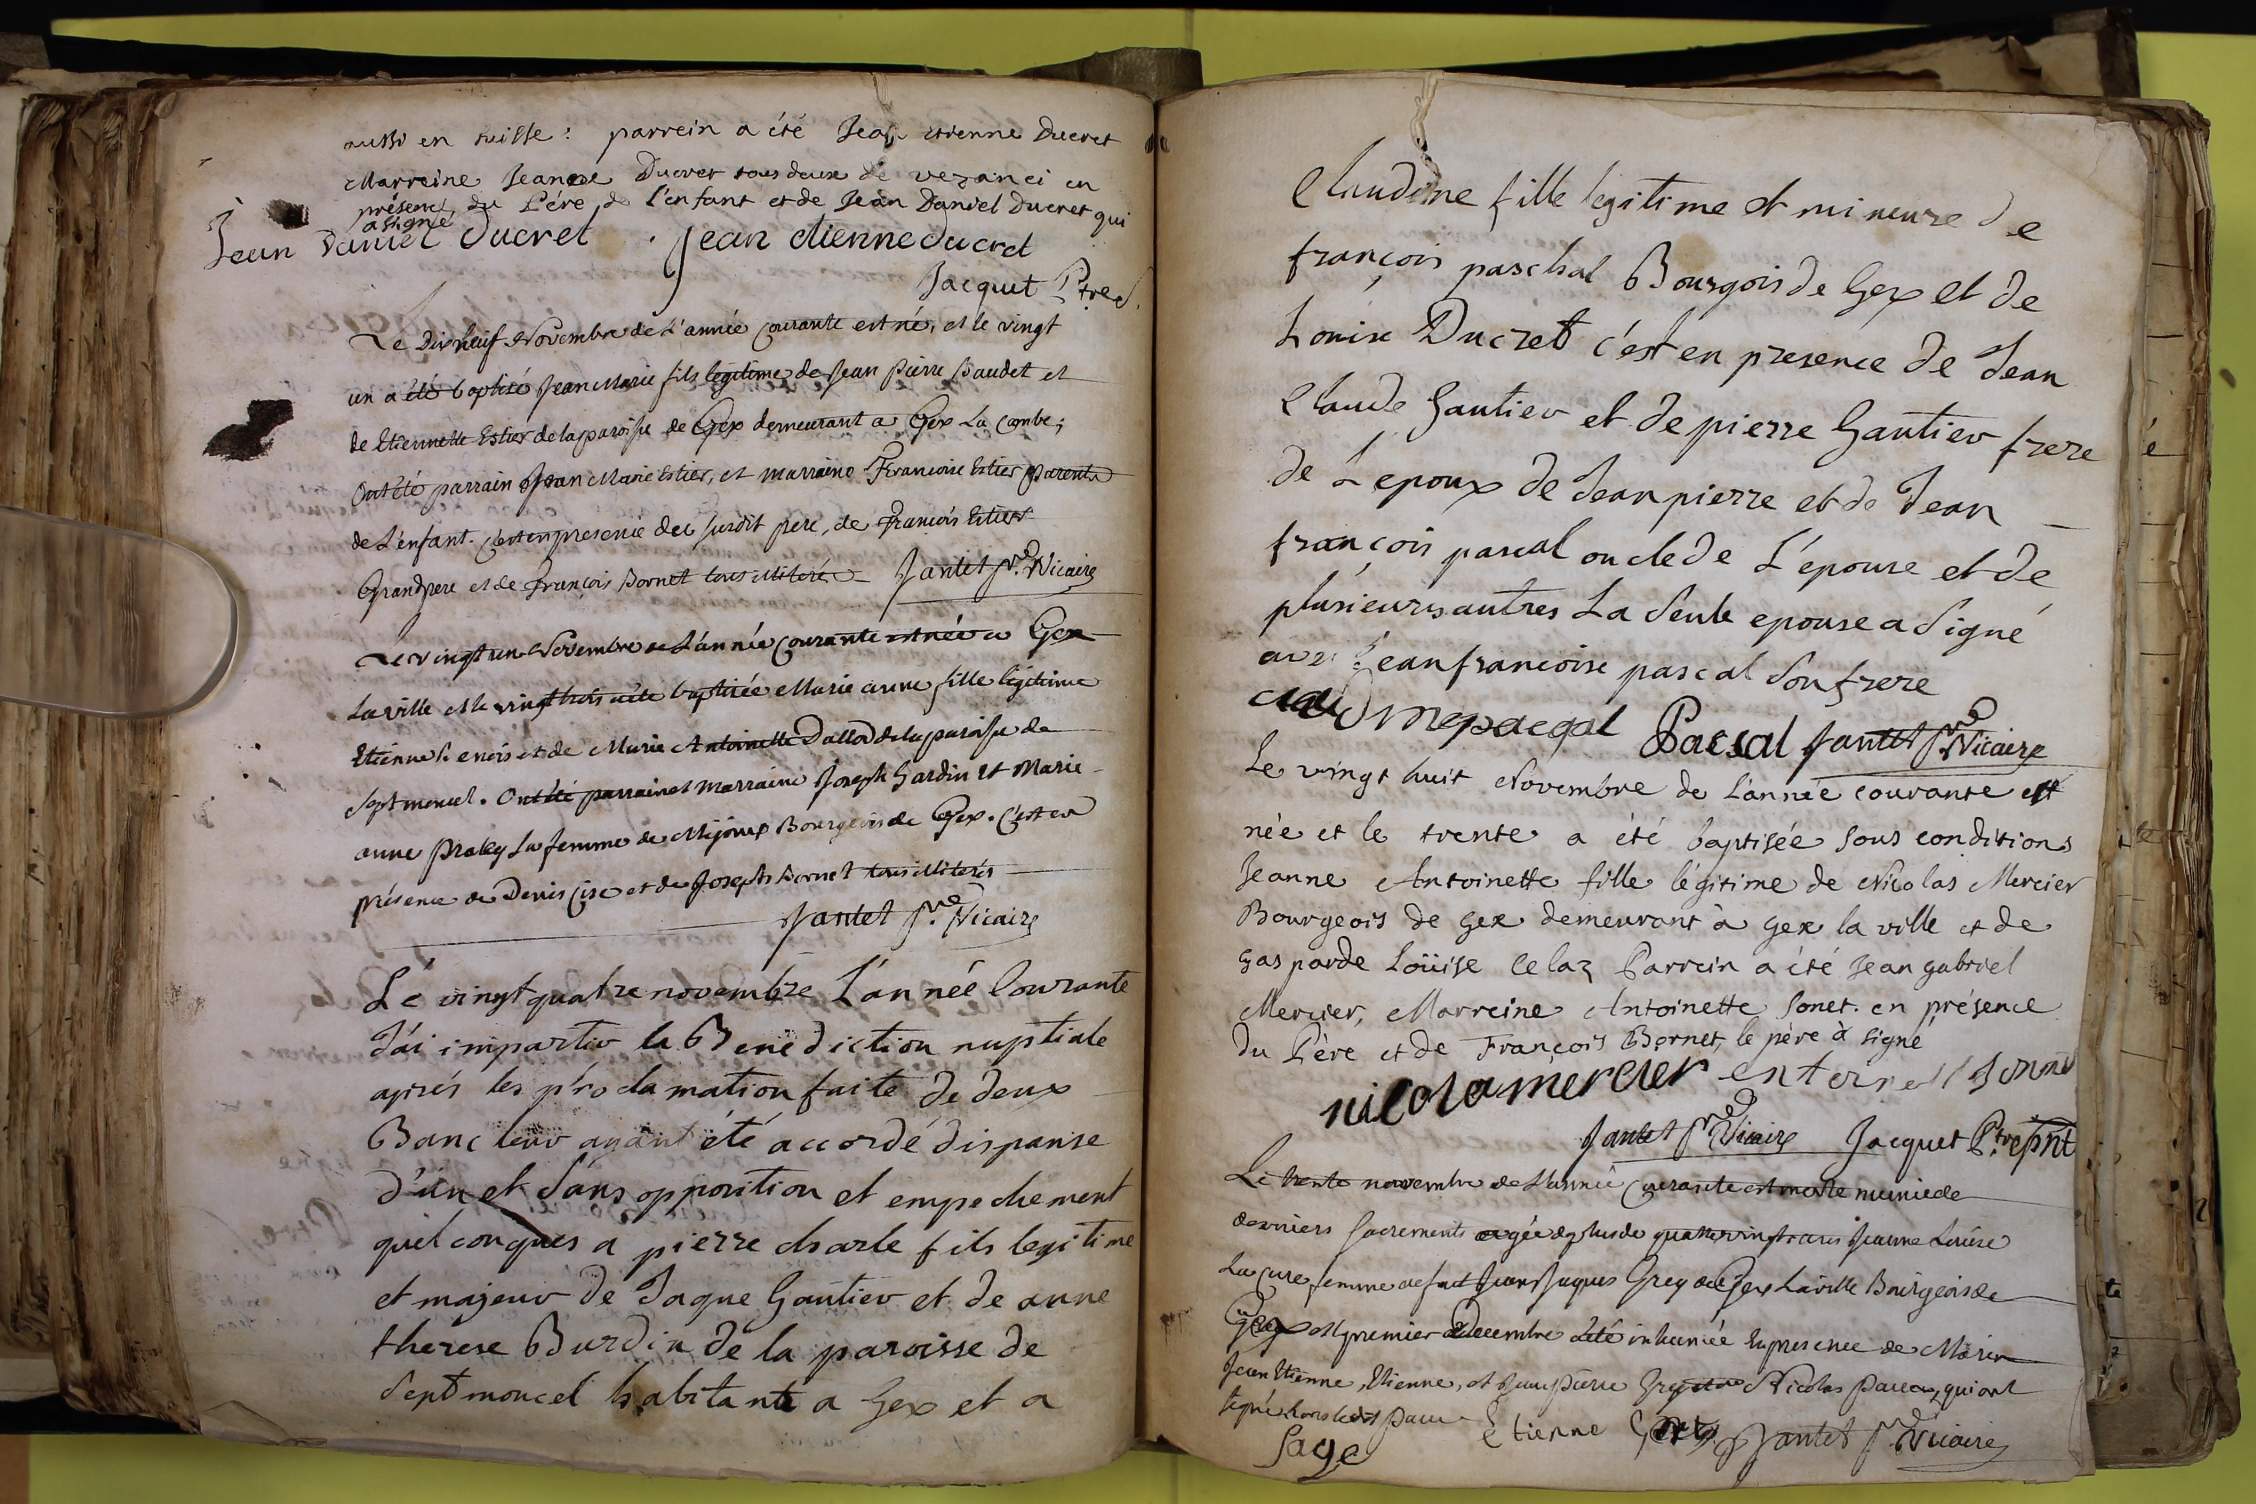 aussi en suisse : parrein a été Jean etienne Ducret
Marreine Jeanne Ducret tous deux de vezanci en
présence du Pére de l'enfant et de Jean Daniel Ducret qui
a signé
Jean Daniel Ducret . Jean etienne ducret
Jacquet Ptre
Le Dix neuf Novembre de L'année courante est né, et le vingt
un a été baptisé Jean Marie fils legitime de Jean Pierre Paudet et
de Etiennette Estier de la paroisse de Gex demeurant a Gex La Combe;
Ont été parrain Jean Marie Estier, et marraine Francoise Estier parents
de L'enfant. C'est en presence du susdit pere, de François Estier
Grandpere et de François Bornet tous illiteré Jantet Ptre Vicaire
Le vingt un Novembre de L'année courante est née a Gex
La ville et le vingt trois a été baptisée Marie anne fille légitime
Etienne et de Marie Antoinette de la paroisse de
Septmoncel. Ont été parrain et marraine Joseph Gardin et Marie
anne La femme de Mijoux Bourgeois de Gex. C'est en
présence de Denis Cise et de Joseph Bornet tous illiterés
Jantet Ptre Vicaire
Lé vingt quatre novembre L'année Courante
J'ai impartiv la Benediction nuptiale
aprés les proclamation faite de deux
Banc leuv ayant été accordé dispanse
d'un et sans opposition et empechement
quelconques a pierre charle fils legitime
et majeuv de Jaque Gautiev et de anne
therese Burdin de la paroisse de
Septmoncel habitant a Gex et a
Claudine fille legitime et mineure de
françois paschal Bourgois de Gex et de
Louise Ducret c'est en presence de Jean
Claude Gautiev et de pierre Gautiev frere
de L'epoux de Jean pierre et de Jean
françois pascal oncle de L'épouse et de
plusieurs autres La seule epouse a signé
avec Jean francoise pascal son frere
claudine pacqal Pascal Jantet Ptre Vicaire
Le vingt huit Novembre de l'année courante est
née et le trente a été baptisée sous conditions
Jeanne Antoinette fille légitime de Nicolas Mercier
Bourgeois de Gex demeurant à Gex la ville et de
Gasparde Loüise Celaz Parrein a été Jean gabriel
Mercier, Marreine Antoinette Sonet. en présence
du Pére et de François Bornet, le père à signé
nicola mercier
Jantet Ptre Vicaire Jacquet Ptre prnt
Le trente novembre de L'année courante est morte munie de
derniers Sacrements agée de plus de quatre vingt ans Jeanne Loüise
La Cure femme de fut Jean Jaques Grey de Gex La ville Bourgeois de
Gex et premier Decembre a été inhumée En presence de
Jean Etienne, Etienne, et Jean Pierre Grey et de Nicolas qui ont
signé hors ledit
Etienne Grey Jantet Ptre Vicaire